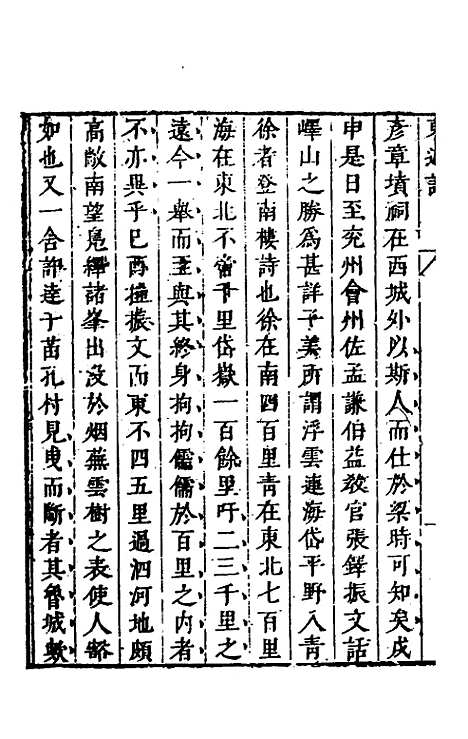 東遊記
彥章墳祠在西城外以斯人而仕於梁時可知矣戌
申是日至兗州會州佐孟謙伯益敎官張鐸振文話
嶧山之勝爲甚詳子美所謂浮雲連海岱平野入靑
徐者登南樓詩也徐在南四百里靑在東北七百里
海在東北不啻千里岱嶽一百餘里吁二三千里之
遠今一舉而至與其終身拘拘儒儒於百里之內者
不亦異乎巳酉振文而東不四五里過泗河地頗
高敞南望鳧繹諸峯出沒於烟蕪雲樹之表使人豁
如也又一舍許達于苗孔村見曳而斷者其魯城歟